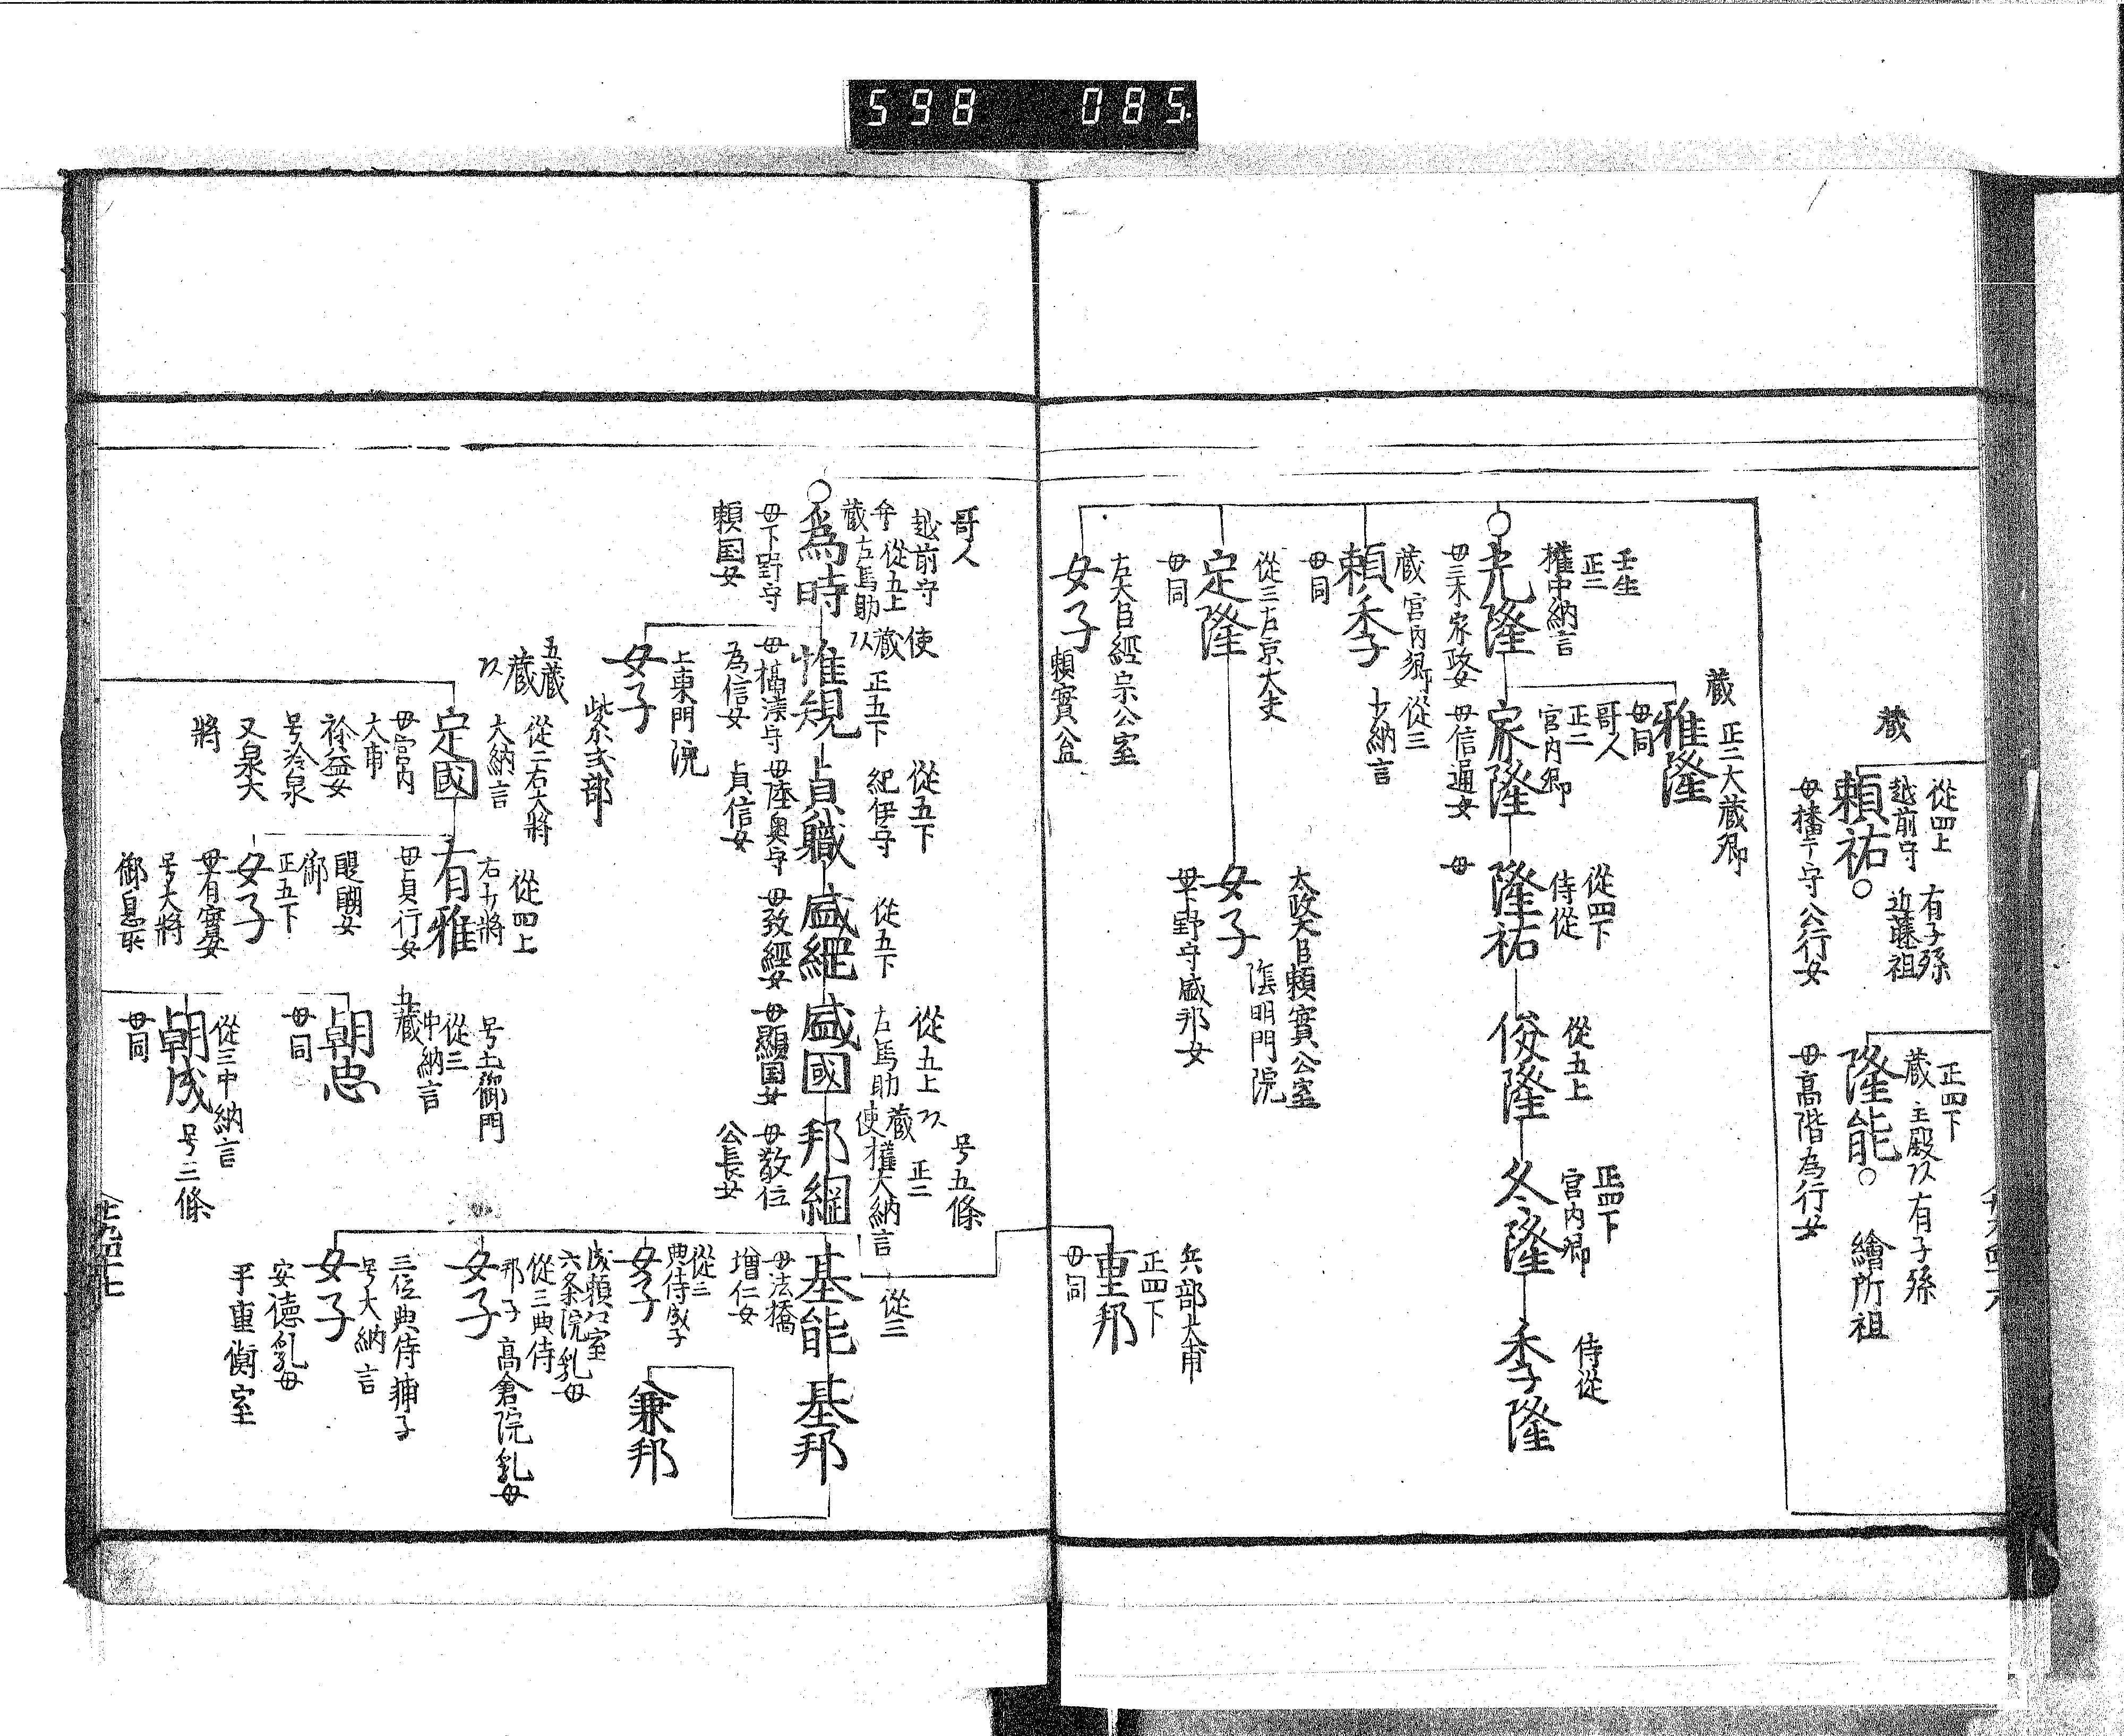 598 085
藏
從四上
越前守
有子孫
近藤祖
頼祐
正四下
藏 主殿以 有子孫
隆能 繪所祖
毋高階為行女
壬生
正二
權中納言
光隆
毋三木家政女
藏 正二大藏卿
雅隆
毋同
哥人
正二
宮内卿
家隆
毋信通女
從四下
侍從
隆祐
毋
從五上
俊隆
正四下
宮内卿
冬隆
侍從
季隆
藏 宮内卿 從三
少納言
頼季
毋同
從三左京大夫
定隆
毋同
太政大臣頼實公室
女子 陰明門院
毋下野守盛邦女
左大臣經宗公室
女子 頼實公母
兵部大甫
正四下
重邦
毋同
哥人
越前守 使
從五上 藏
藏左馬助
為時
毋下野守
頼国女
正五下
惟規
毋攝津守
為信女
從五下
紀伊守
貞職
毋陸奥守
貞信女
從五下
盛綱
毋致經女
從五上
左馬助
盛國
毋顕国女
号五條
正二
使權大納言
邦綱
毋敬位
公長女
從三
基能
毋法橋
増仁女
基邦
兼邦
上東門院
女子
紫式部
從三
典侍成子
女子
成頼公室
六条院乳毋
從三典侍
邦子 高倉院乳毋
女子
三位典侍輔子
号大納言
女子
安徳乳毋
平重衡室
五藏
藏
從二右大將
大納言
定國
毋宮内
大甫
号泠泉
又泉大
將
從四上
右少將
有雅
毋貞行女
醍醐女
御
正五下
女子
毋有實女
号大將
御息所
号土御門
從三
中納言
五藏
朝忠
毋同
從三中納言
朝成 号三條
毋同